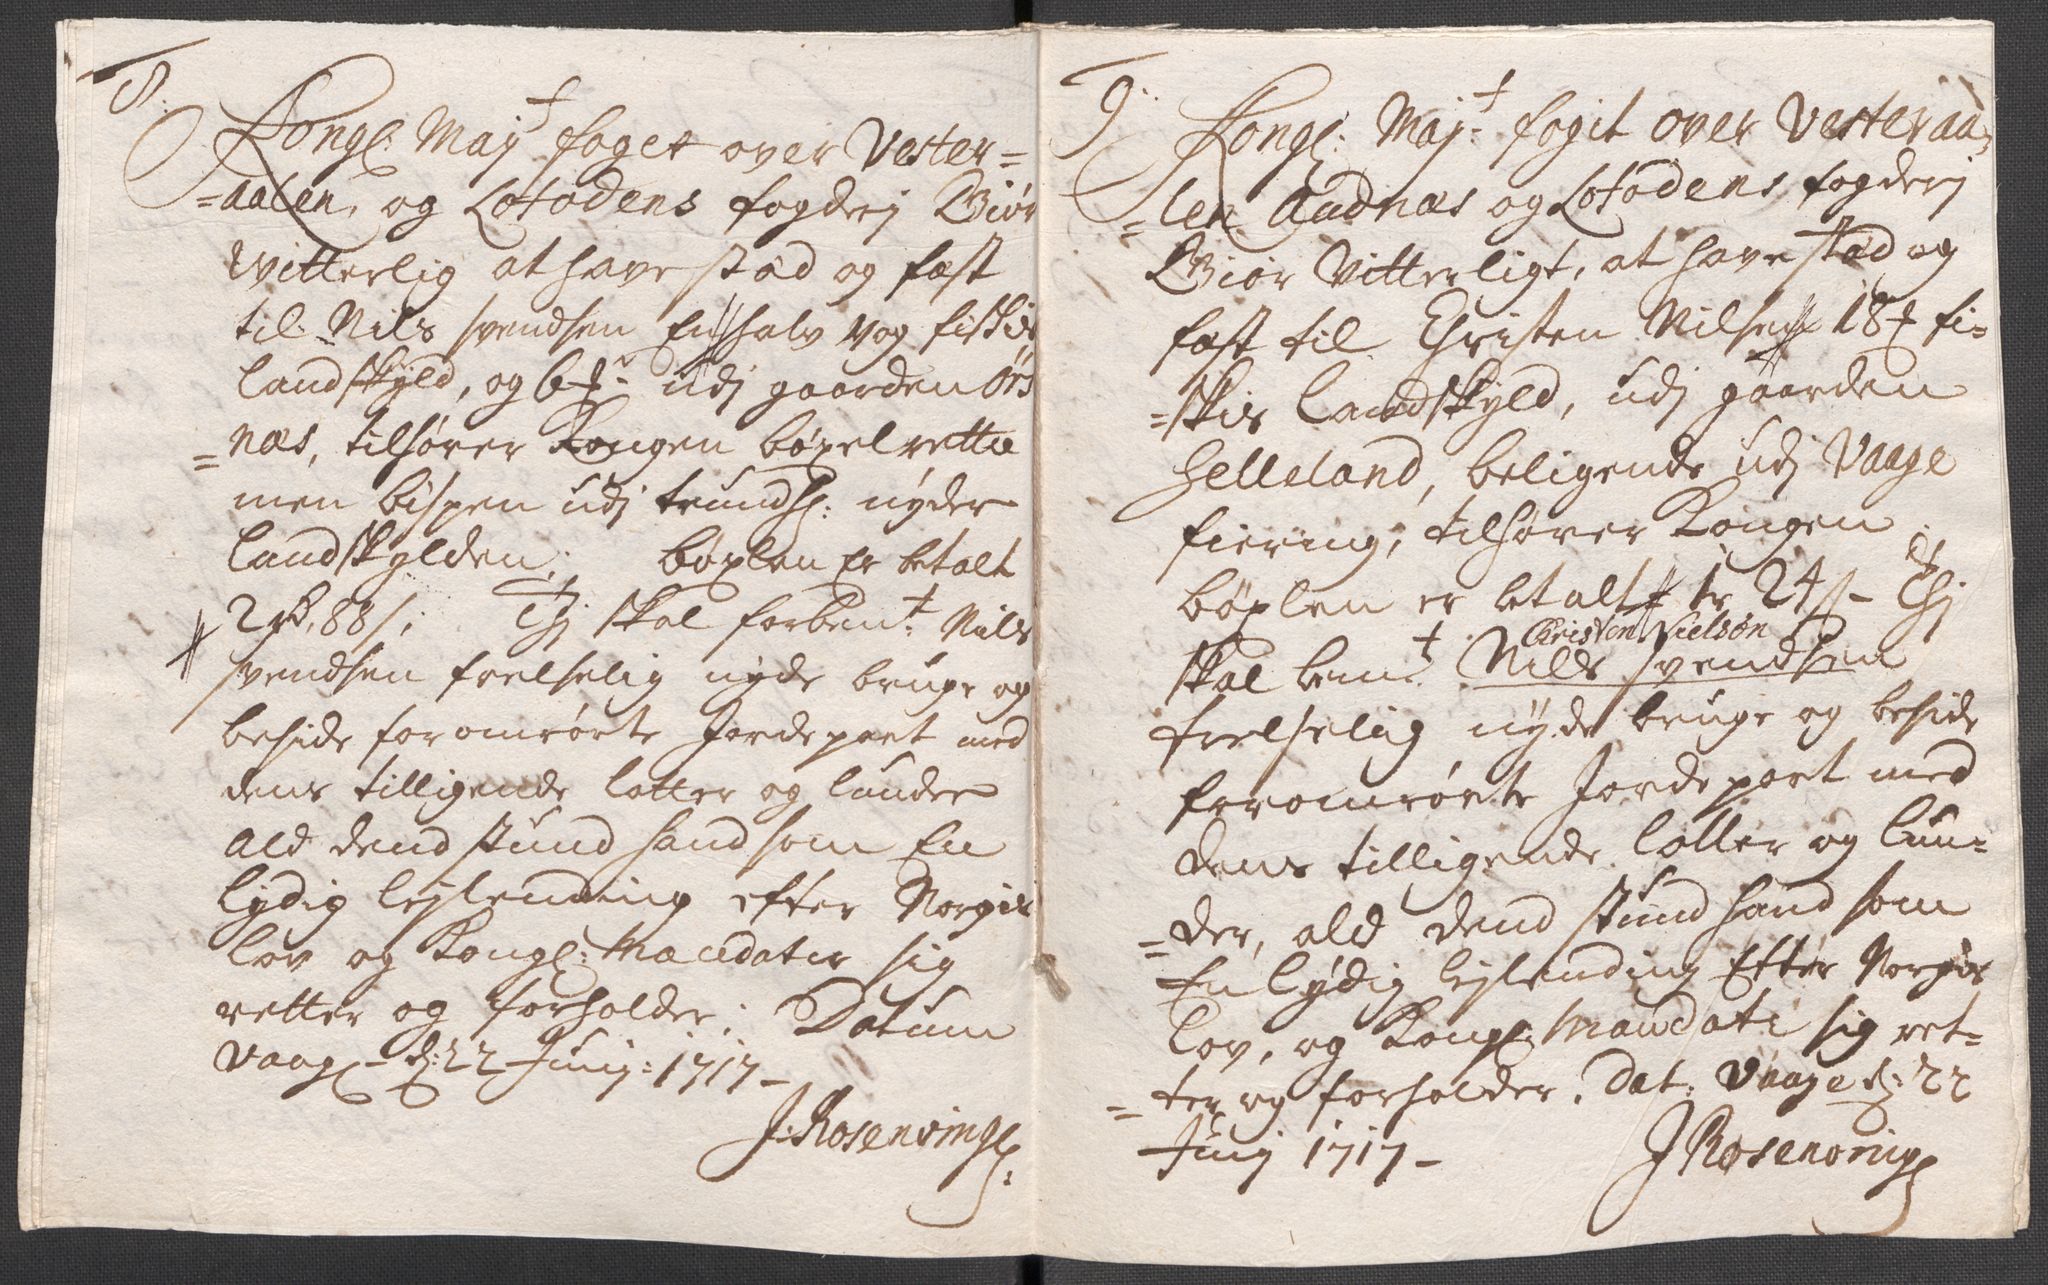 8.
Kongl: Mayt foget over Vester-
=aalen, og Lofodens fogderj Giør
Witterlig at have stød og fæst
til Nils Svendsen En halv vog fiskis
landskyld, og 6 ℔r udj gaarden Ørs
=næs, tilhører Kongen böxel rettie
men bispen udj trundh: nyder
landskylden, böxlen Er betalt
2 rd. 88 s; Thj skal forbent: Nils
Svendsen frelselig nyde bruge og
beside foromrörte Jordepart med
dens tilligende lotter og lunder
Ald dend stund hand som En
lydig lejlending efter Norgis
lov og Kongl: Mandater sig
retter og forholder; Datum
Vaage d: 22 Junij: 1717-
J: Rosenvinge:
9.
Kongl: Mayt: fogit over Vesteraa=
=len Andnæs og Lofodens fogderj
Giör Vitterligt, at have stæd og
fæst til Christen Nilsen 18 ℔ fi=
=skis landskyld, udj gaarden
Helleland, beligende udj Vaage
fiering, tilhører Kongen
böxlen er betalt 24 s- Thj
Christen Nielsøn
skal bemt: Nils Svendsen
frelselig nyde bruge og beside
foromrörte Jordepart med
dens tilligende lotter og lun=
=der, ald dend stund hand som
En lydig lejlending Efter Norgis
lov, og Kongl: Mandate sig ret=
=ter og forholder. Dat: Vaage d: 22
Junij 1717-
J Rosenvinge